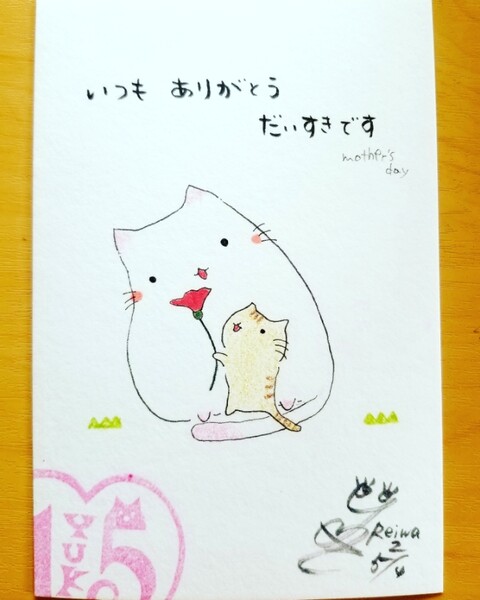 いつも ありがとう
だいすきです
mother's
day
15
YUKO
Reiwa
2